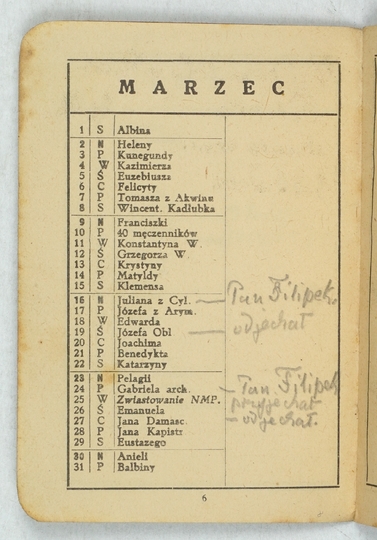 MARZEC
1 S Albina
2 N Heleny
3 P Kunegundy
4 W Kazimierza
5 Ś Euzebiusza
6 C Felicyty
7 P Tomasza z Akwinu
8 S Wincent. Kadłubka
9 N Franciszki
10 P 40 męczenników
11 W Konstantyna W.
12 Ś Grzegorza W
13 C Krystyny
14 P Matyldy
15 S Klemensa
16 N Juliana z Cyl. — Pan Filipek
17 P Józefa z Arym.
18 W Edwarda
19 Ś Józefa Obl — odjechał
20 C Joachima
21 P Benedykta
22 S Katarzyny
23 N Pelagii
24 P Gabriela arch. — Pan Filipek
25 W Zwiastowanie NMP. przyjechał
26 Ś Emanuela
27 C Jana Damasc. — odjechał.
28 P Jana Kapistr
29 S Eustazego
30 N Anieli
31 P Balbiny
6